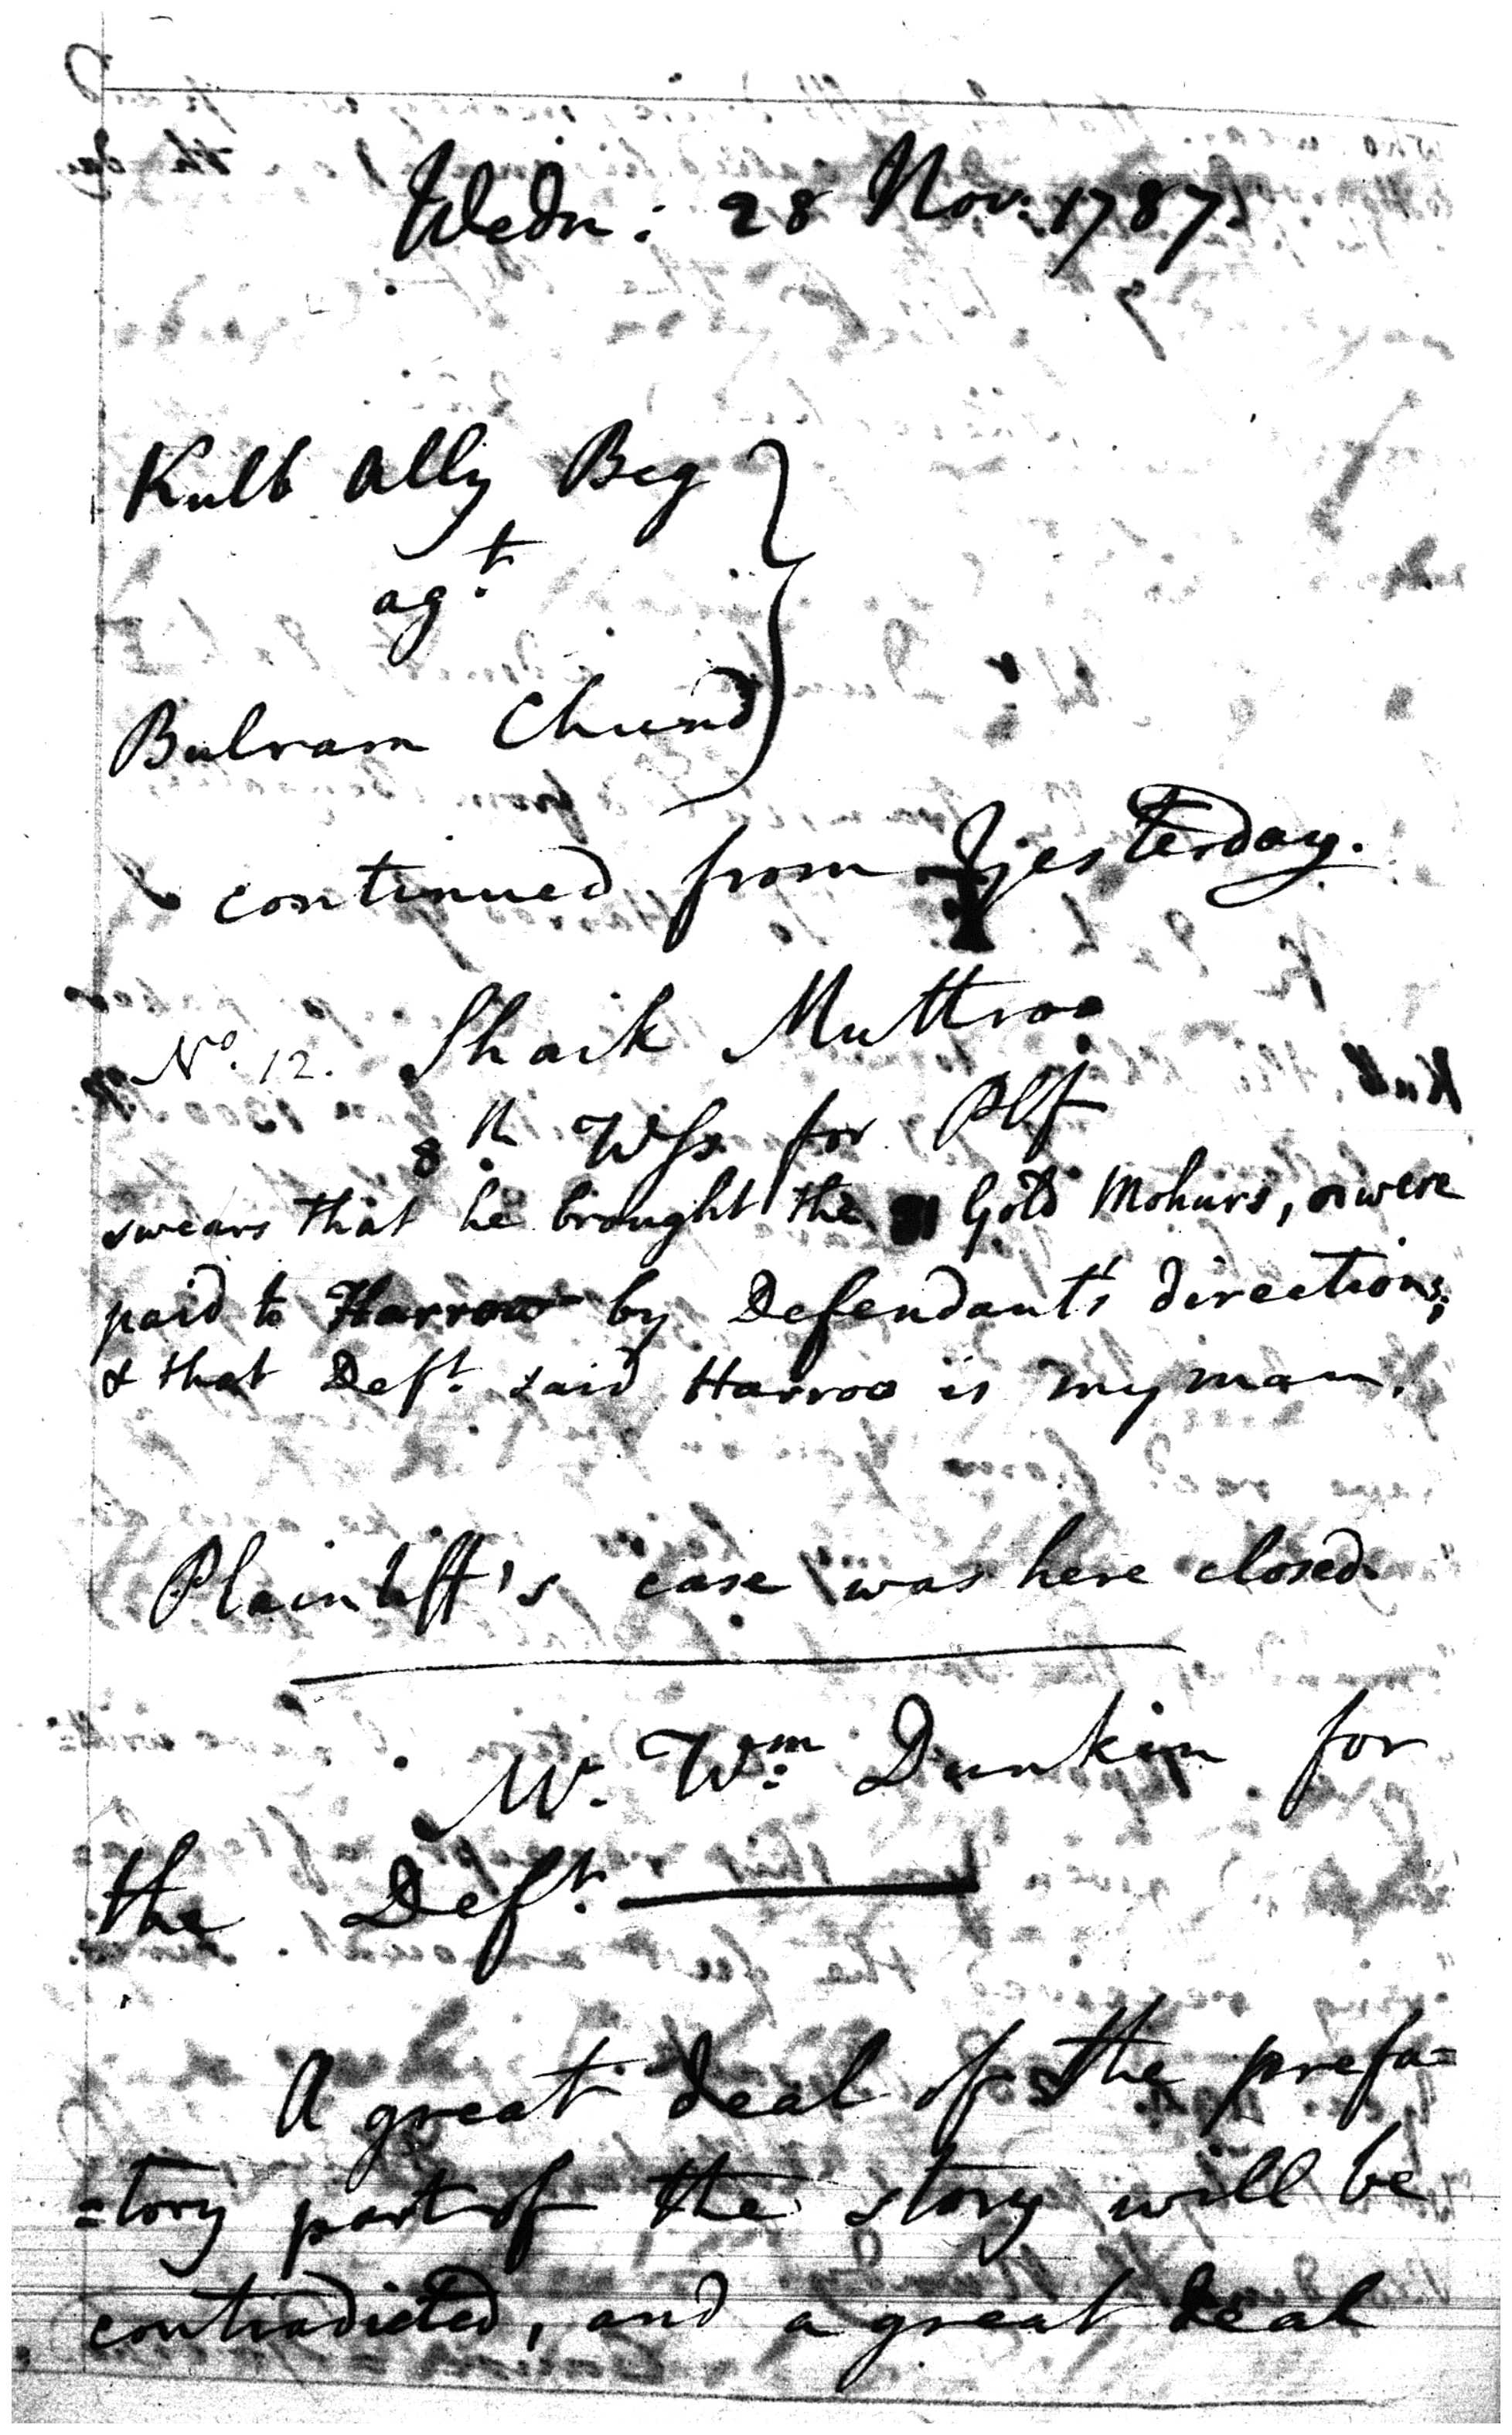 Wedn: 28 Nov: 1787.
Kulb Ally Beg
agt.
Bulram Chund
continued from yesterday.
No. 12. Shaik Muttroo
8th. Wss for Plf
swears that he brought the Gold Mohurs, were
paid to Harroo by Defendant's directions;
& that Deft. said Harroo is my man.
Plaintiff's case was here closed.
Mr. Wm. Dunkin for
the Deft.
A great deal of the prefa=
=tory part of the story will be
contradicted, and a great deal